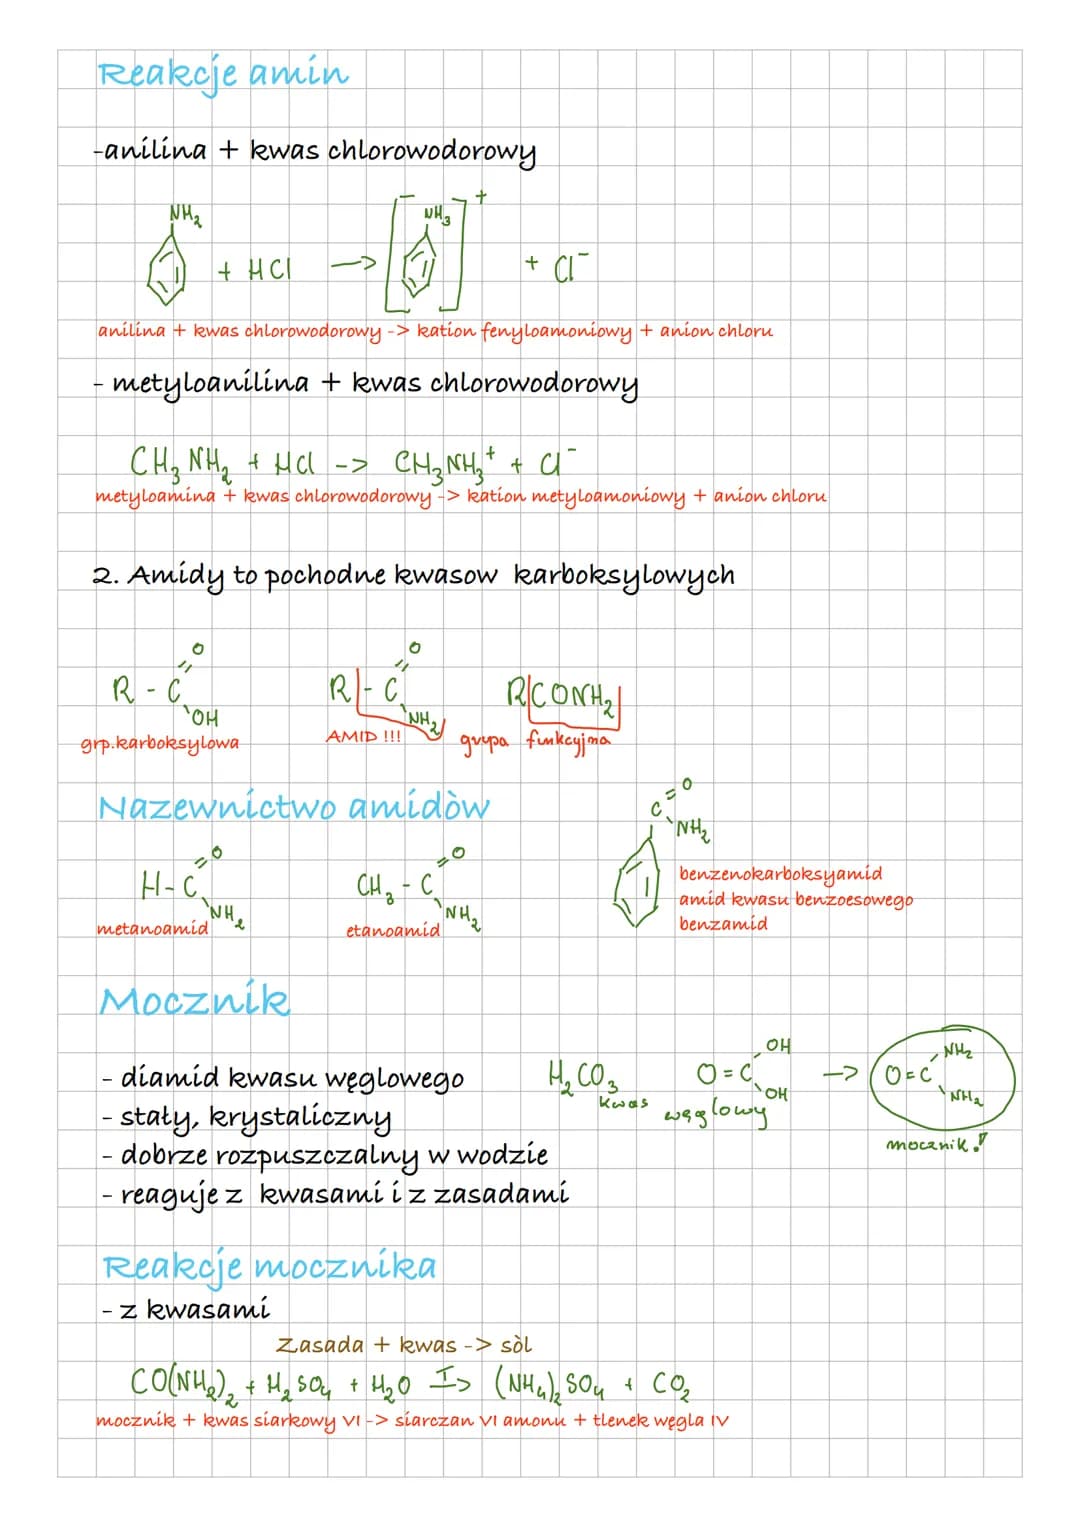 Reakcje amin
-anilina + kwas chlorowodorowy
NH₂
NH₃
+
+ HCl -> + Cl⁻
anilina + kwas chlorowodorowy -> kation fenyloamoniowy + anion chloru
- metyloanilina + kwas chlorowodorowy
CH₃NH₂ + HCl -> CH₃NH₃⁺ + Cl⁻
metyloamina + kwas chlorowodorowy -> kation metyloamoniowy + anion chloru
2. Amidy to pochodne kwasow karboksylowych
O
R - C
OH
grp.karboksylowa
O
R - C
NH₂
AMID !!!
RCONH₂
grupa funkcyjna
Nazewnictwo amidòw
H-C
O
NH₂
metanoamid
CH₃ - C
O
NH₂
etanoamid
C
O
NH₂
benzenokarboksyamid
amid kwasu benzoesowego
benzamid
Mocznik
- diamid kwasu węglowego
- stały, krystaliczny
- dobrze rozpuszczalny w wodzie
- reaguje z kwasami i z zasadami
H₂CO₃
kwas węglowy
O=C
OH
OH
->
O=C
NH₂
NH₂
mocznik!
Reakcje mocznika
- z kwasami
Zasada + kwas -> sòl
CO(NH₂)₂ + H₂SO₄ + H₂O T-> (NH₄)₂SO₄ + CO₂
mocznik + kwas siarkowy VI -> siarczan VI amonu + tlenek węgla IV